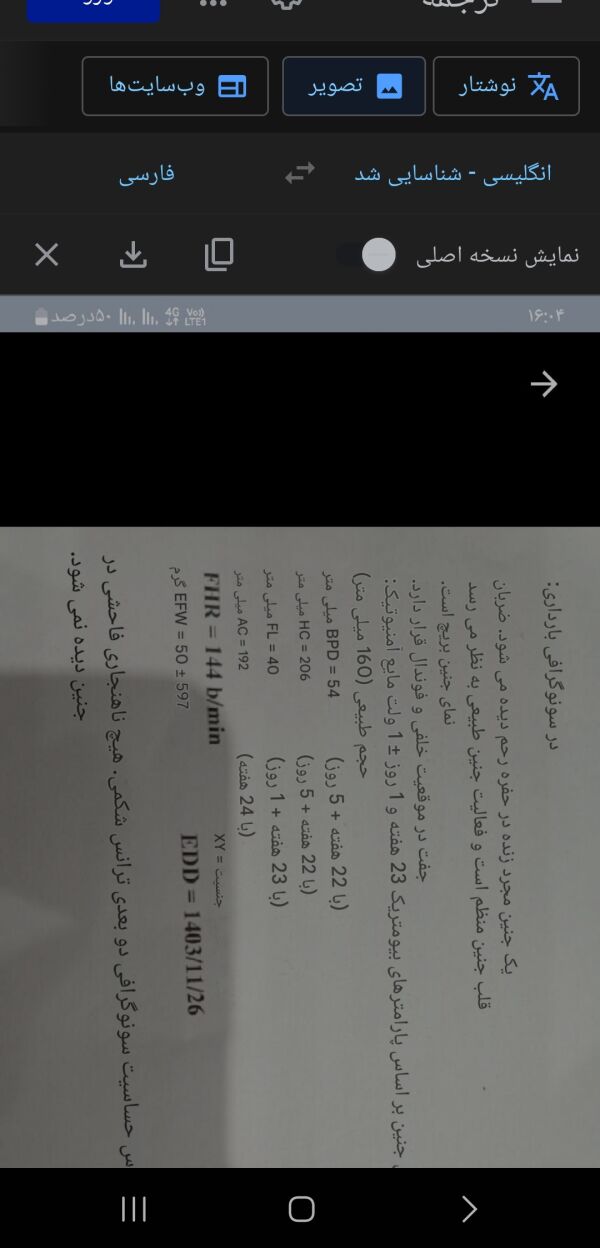 ترجمه
نوشتار
تصویر
وب‌سایت‌ها
انگلیسی - شناسایی شد
فارسی
نمایش نسخه اصلی
۱۶:۰۴
Vo))
LTE1
4G
۵۰درصد
در سونوگرافی بارداری:
یک جنین مجرد زنده در حفره رحم دیده می شود. ضربان
قلب جنین منظم است و فعالیت جنین طبیعی به نظر می رسد
نمای جنین بریچ است.
جفت در موقعیت خلفی و فوندال قرار دارد.
جنین بر اساس پارامترهای بیومتریک 23 هفته و 1 روز ± 1 ولت مایع آمنیوتیک:
حجم طبیعی (160 میلی متر)
BPD = 54 میلی متر (با 22 هفته + 5 روز)
HC = 206 میلی متر (با 22 هفته + 5 روز)
FL = 40 میلی متر (با 23 هفته + 1 روز)
AC = 192 میلی متر (با 24 هفته)
FHR = 144 b/min جنسیت = XY
EFW = 50 ± 597 گرم EDD = 1403/11/26
س حساسیت سونوگرافی دو بعدی ترانس شکمی. هیچ ناهنجاری فاحشی در
جنین دیده نمی شود.